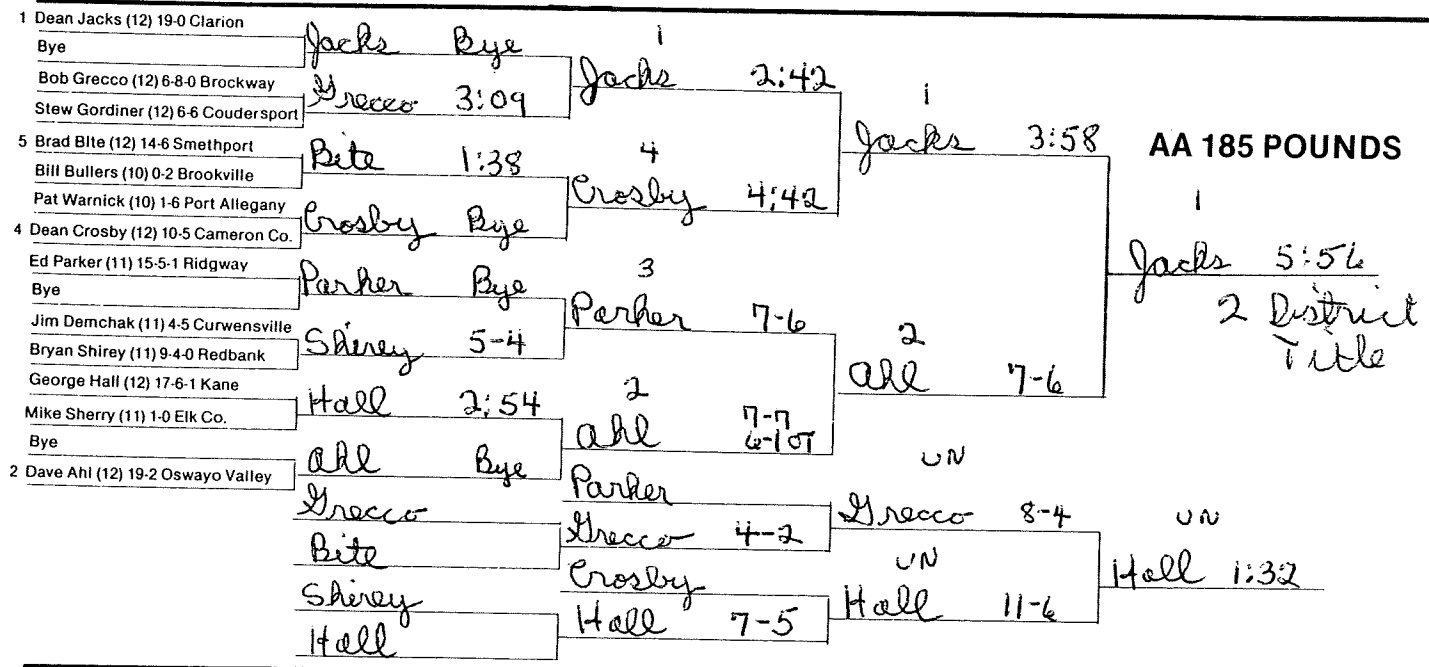 1 Dean Jacks (12) 19-0 Clarion
Bye
Bob Grecco (12) 6-8-0 Brockway
Stew Gordiner (12) 6-6 Coudersport
5 Brad Bite (12) 14-6 Smethport
Bill Bullers (10) 0-2 Brookville
Pat Warnick (10) 1-6 Port Allegany
4 Dean Crosby (12) 10-5 Cameron Co.
Ed Parker (11) 15-5-1 Ridgway
Bye
Jim Demchak (11) 4-5 Curwensville
Bryan Shirey (11) 9-4-0 Redbank
George Hall (12) 17-6-1 Kane
Mike Sherry (11) 1-0 Elk Co.
Bye
2 Dave Ahl (12) 19-2 Oswayo Valley
Jacks Bye
Grecco 3:09
Bite 1:38
Crosby Bye
Parker Bye
Shirey 5-4
Hall 2:54
Ahl Bye
Grecco
Bite
Shirey
Hall
1
Jacks 2:42
4
Crosby 4:42
3
Parker 7-6
2
Ahl 7-7
6-1 OT
Parker
Grecco 4-2
Crosby
Hall 7-5
1
Jacks 3:58
2
Ahl 7-6
UN
Grecco 8-4
UN
Hall 11-6
AA 185 POUNDS
1
Jacks 5:56
2 District
Title
UN
Hall 1:32